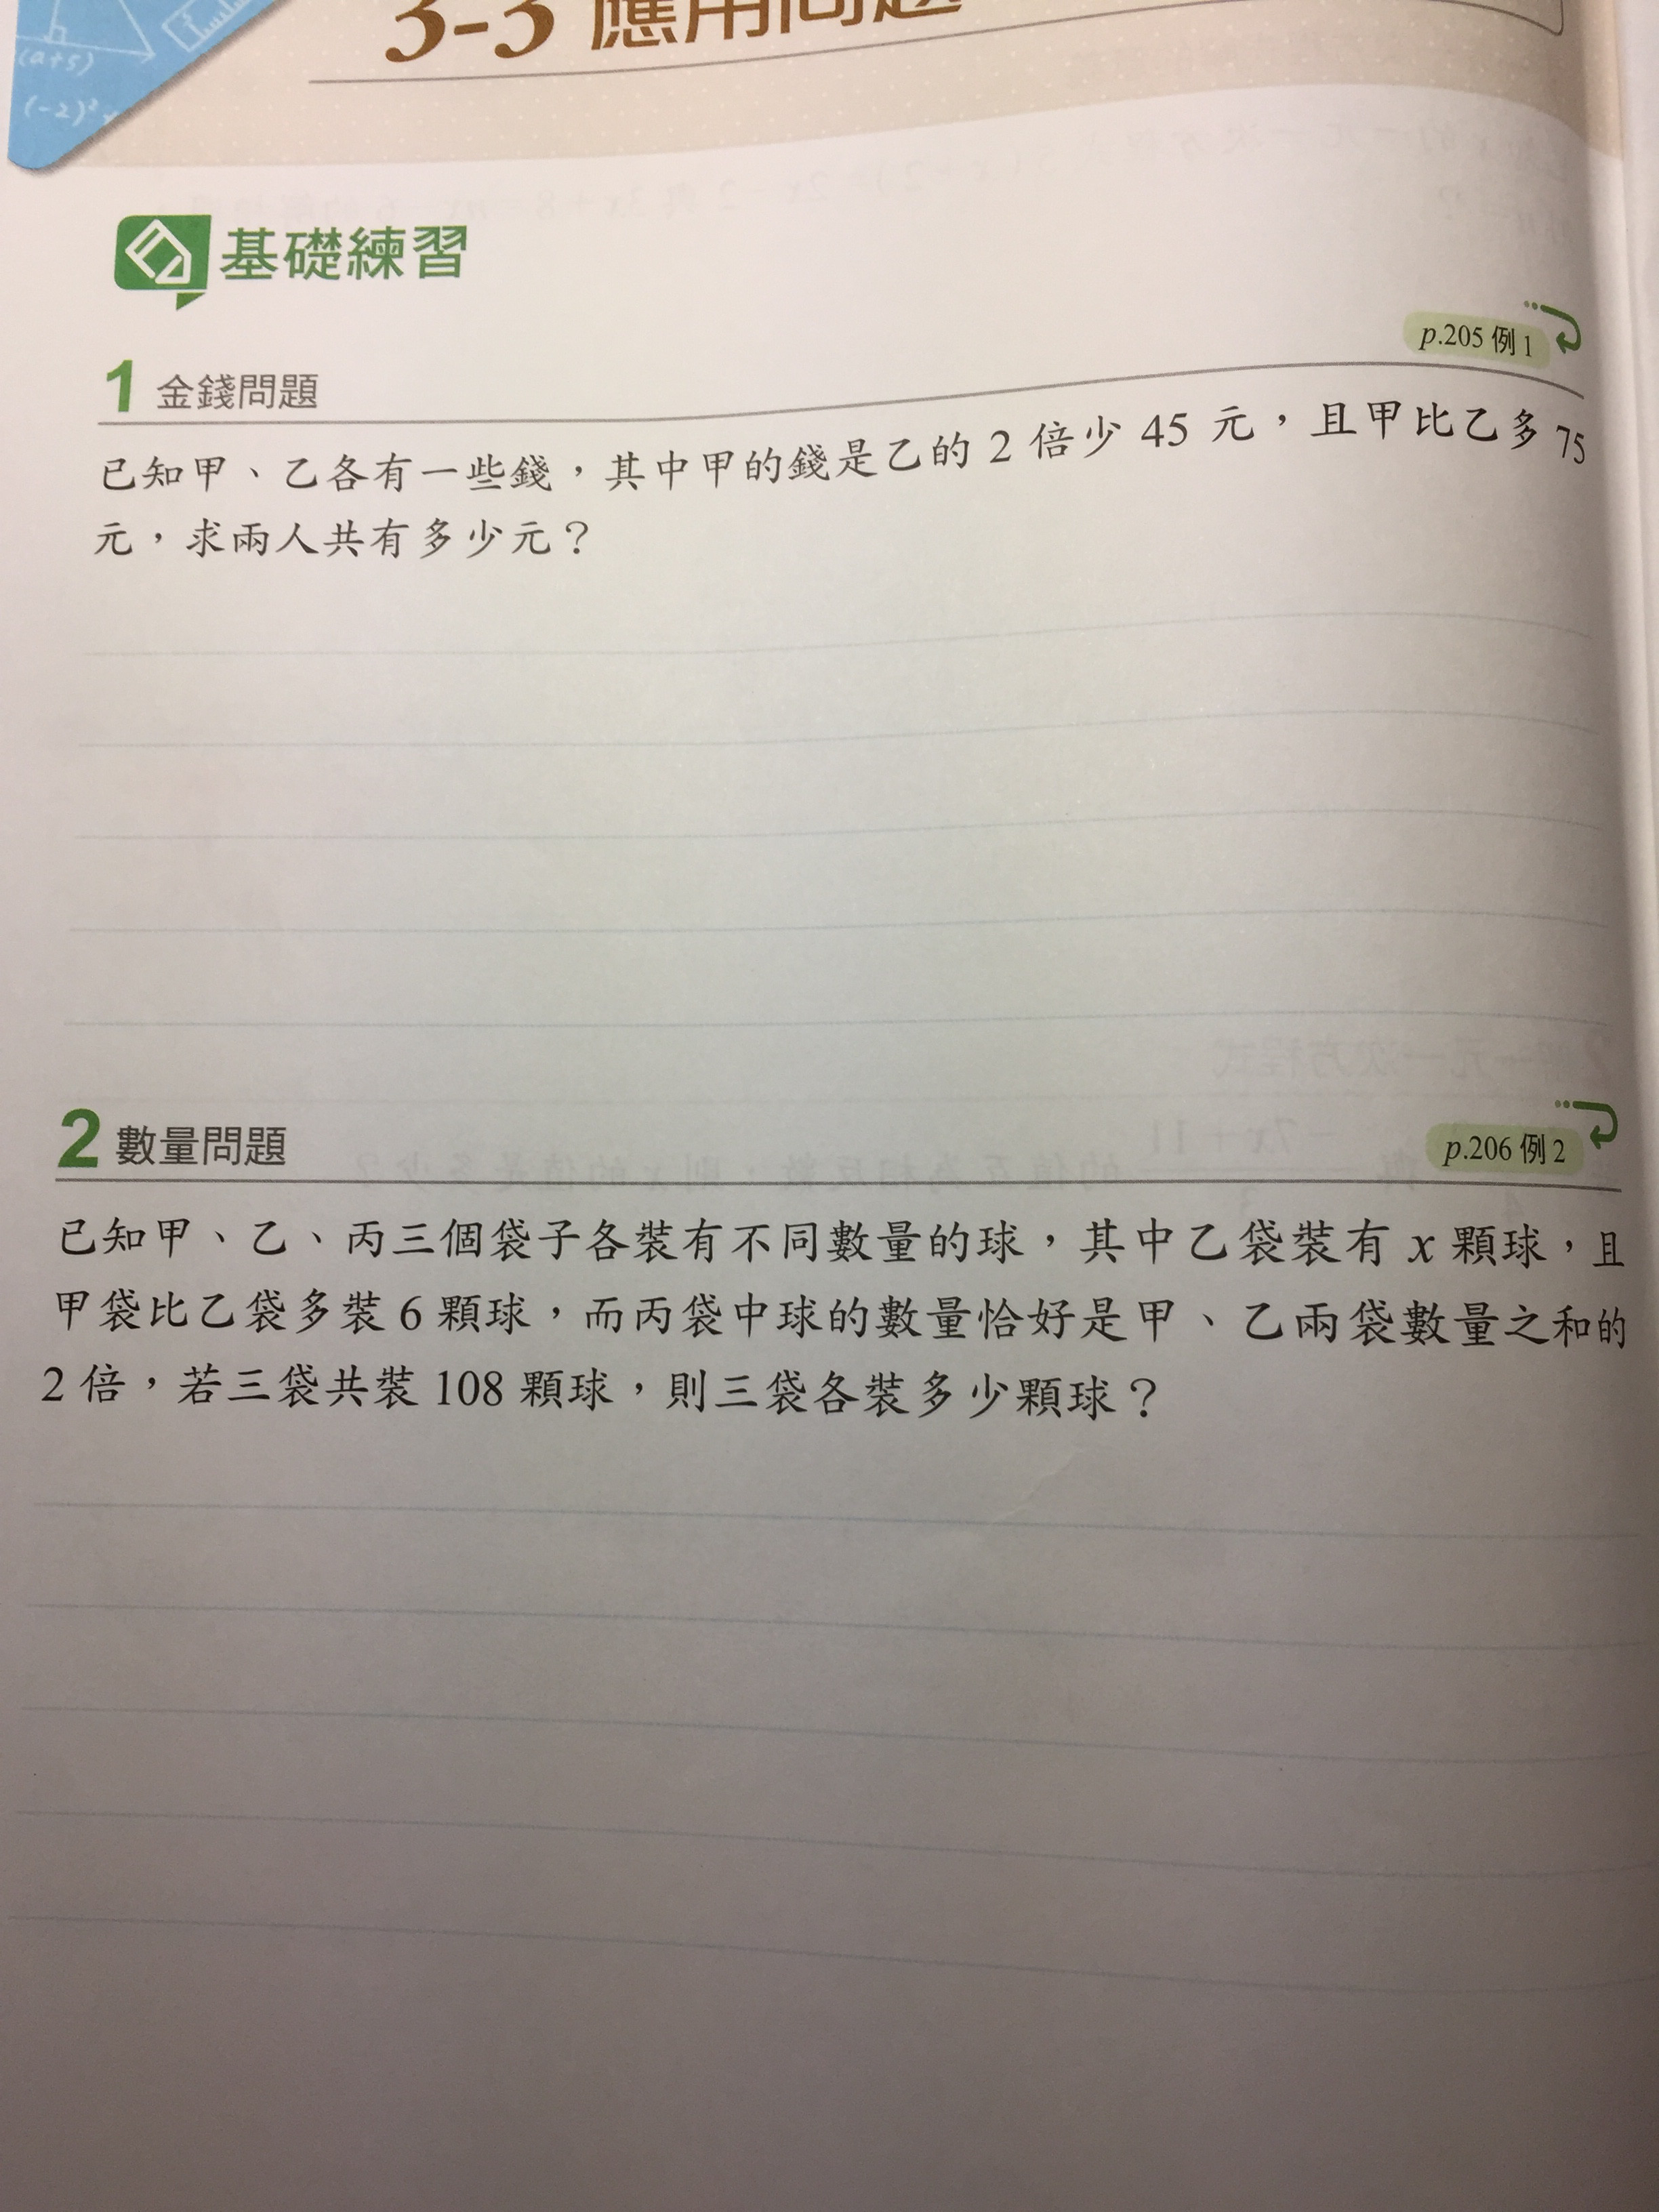 (a+5)
(-2)²
3-3 應用問題
基礎練習
p.205 例 1
1 金錢問題
已知甲、乙各有一些錢，其中甲的錢是乙的 2 倍少 45 元，且甲比乙多 75
元，求兩人共有多少元？
2 數量問題
p.206 例 2
已知甲、乙、丙三個袋子各裝有不同數量的球，其中乙袋裝有 x 顆球，且
甲袋比乙袋多裝 6 顆球，而丙袋中球的數量恰好是甲、乙兩袋數量之和的
2 倍，若三袋共裝 108 顆球，則三袋各裝多少顆球？